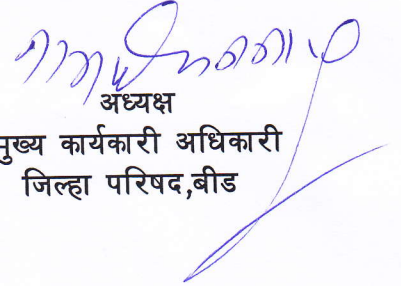 अध्यक्ष
मुख्य कार्यकारी अधिकारी
जिल्हा परिषद,बीड